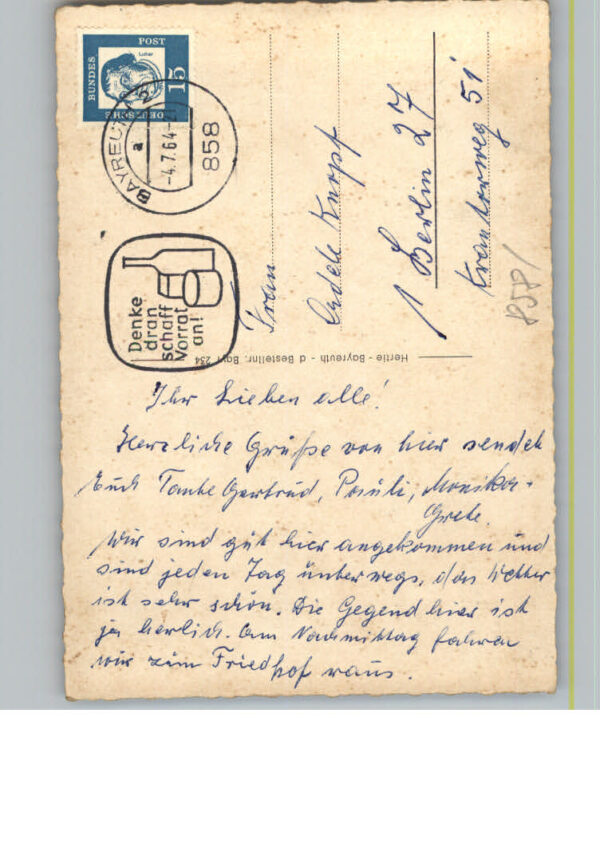 BUNDES
POST
Luther
15
DEUTSCHE
BAYREUTH
a
-4.7.64-
858
Denke
dran
schaff
Vorrat
an!
Frau
Knopf
1 Berlin 27
51
858/
Hertie - Bayreuth - d Bestellnr. Bayr 234
Ihr Lieben alle!
Herzliche Grüße von hier sendet
Euch Tante Gertrud, Pauli, Monika.
Grete.
Wir sind gut hier angekommen und
sind jeden Tag unterwegs, das Wetter
ist sehr schön. Die Gegend hier ist
ja herlich. Am Nachmittag fahren
wir zum Friedhof raus.